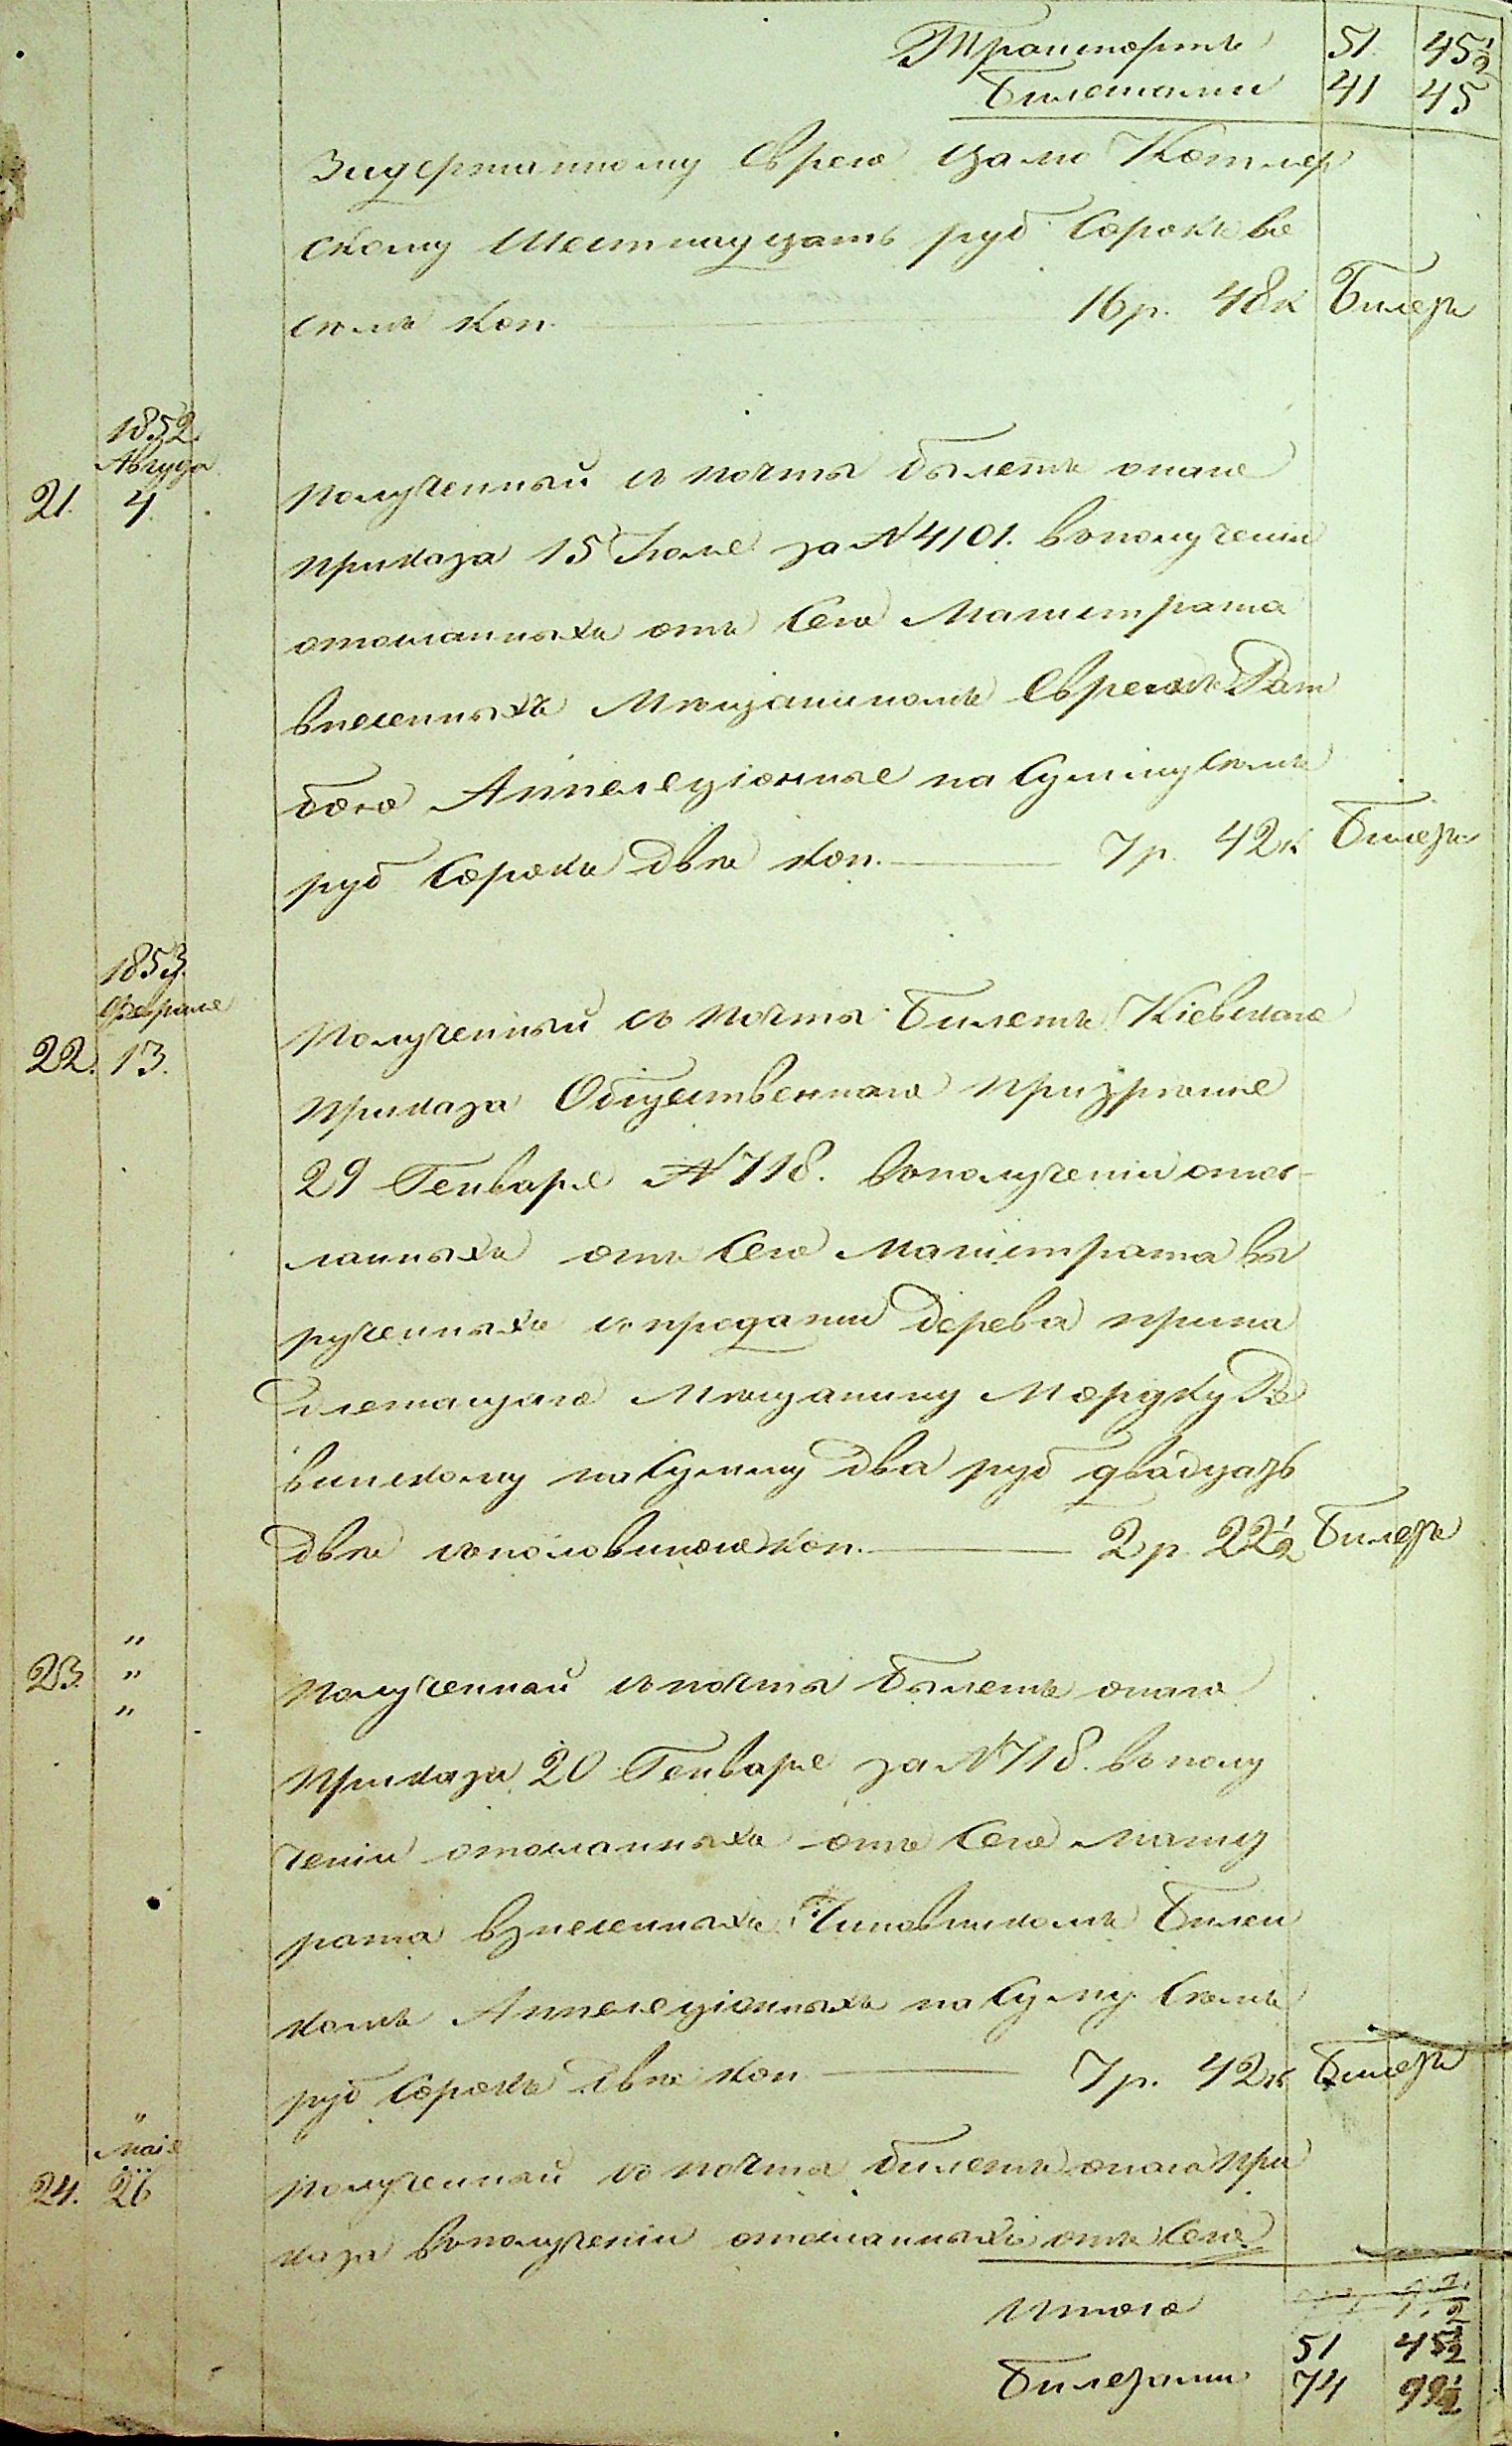 Транспортъ 51. 45½
Билетами 41 45
Задержанному Еврею Цалю Котляр
скому Шестнадцать руб Сорокъ во
семь коп. 16 р. 48 к Билет
1852
Августа
21. 4. Полученный съ почты былетъ онаго
приказа 15 Іюля за № 4101. въ полученіи
отосланныхъ отъ Сего Магистрата
внесенныхъ Мещаниномъ Евреемъ
Аппеляціонные на Сумму Семь
руб Сорокъ две коп. 7 р. 42 к Билетъ
1853.
Февраля
22. 13. Полученный съ почты Билетъ Кіевскаго
приказа Общественнаго призрения
29 Генваря № 718. въ полученіи отос-
ланныхъ отъ Сего Магистрата вы
рученныхъ съ продажи дерева прина
длежащаго Мещанину Мордку Ро
винскому на Сумму два руб двадцать
две съ половиною коп. 2 р. 22½ Билетъ
"
23. " Полученный съ почты Былетъ онаго
"
Приказа 20 Генваря за № 718. въ полу
ченіи отосланныхъ отъ Сего магист
рата взнесенныхъ Чиновникомъ Билен
комъ Аппеляціонныхъ на Сумму Семь
руб Сорокъ две коп 7 р. 42 к Билетъ
"
маія
24. 26 Полученный съ почта билетъ онаго при
каза въ полученіи отосланныхъ отъ Сего
Итого
51 45½
Билетами 74 99½